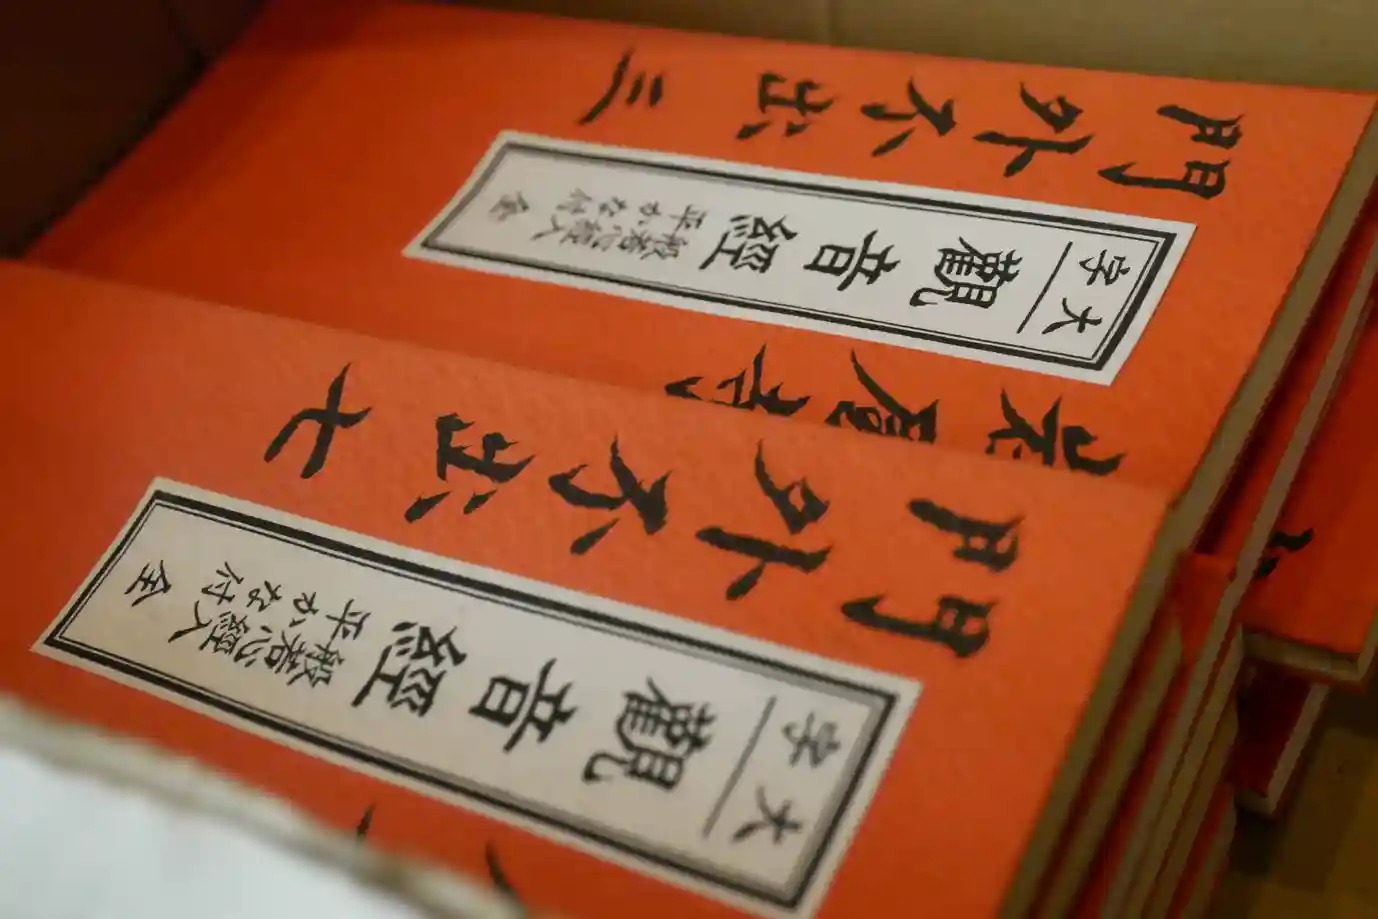 大字
觀音經
般若心經入
平かな付
全
門外不出三
大字
觀音經
般若心經入
平かな付
全
門外不出七